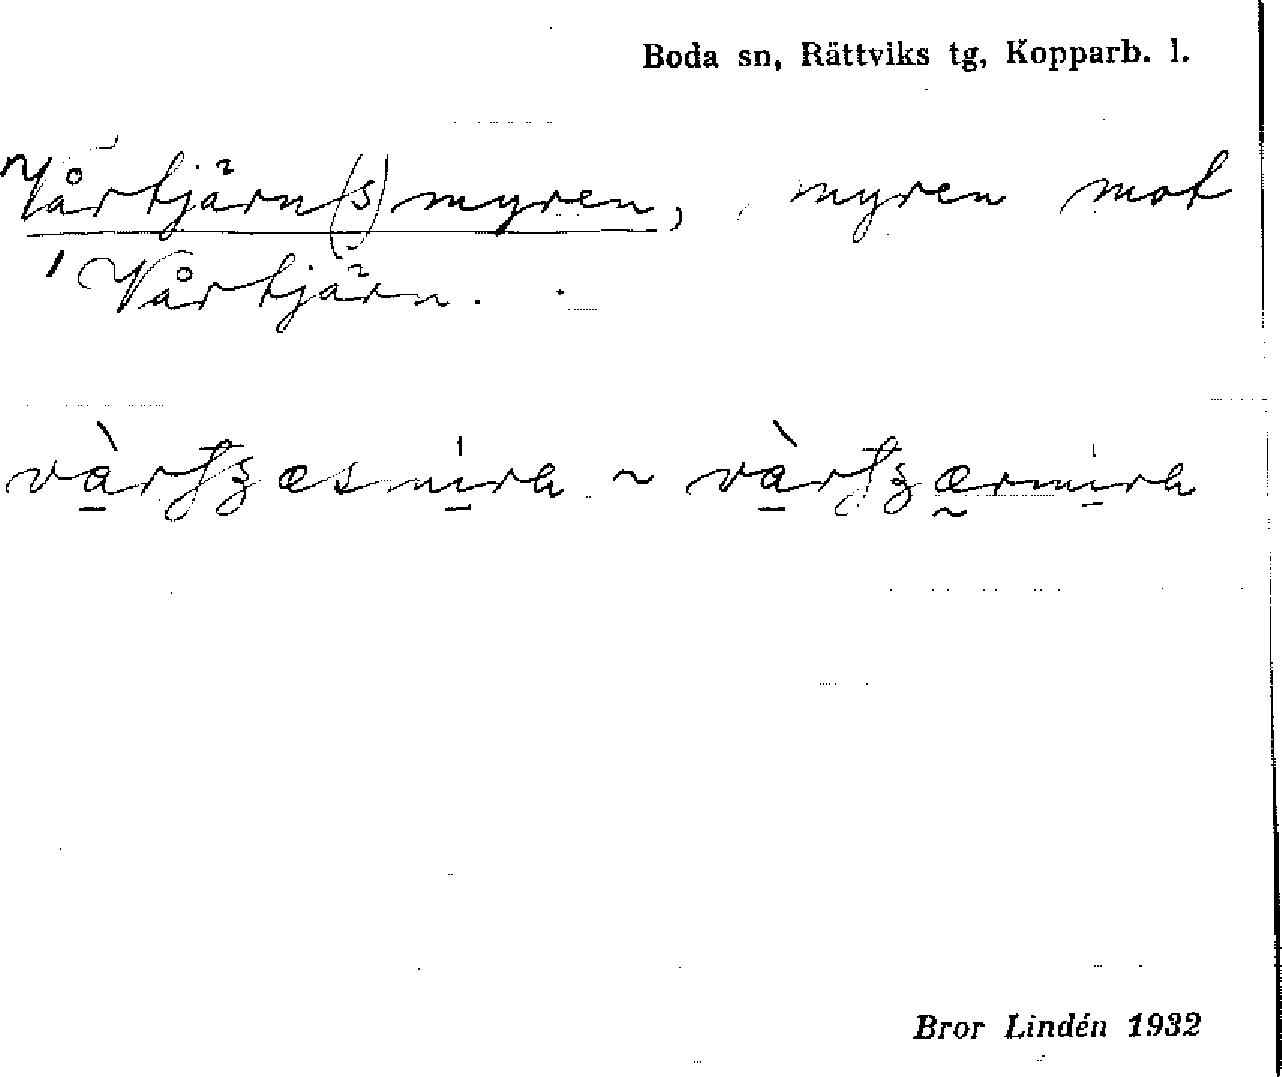 Boda sn, Rättviks tg, Kopparb. l.
Vårtjärn(s)myren, myren mot
Vårtjärn.
~
Bror Lindén 1932